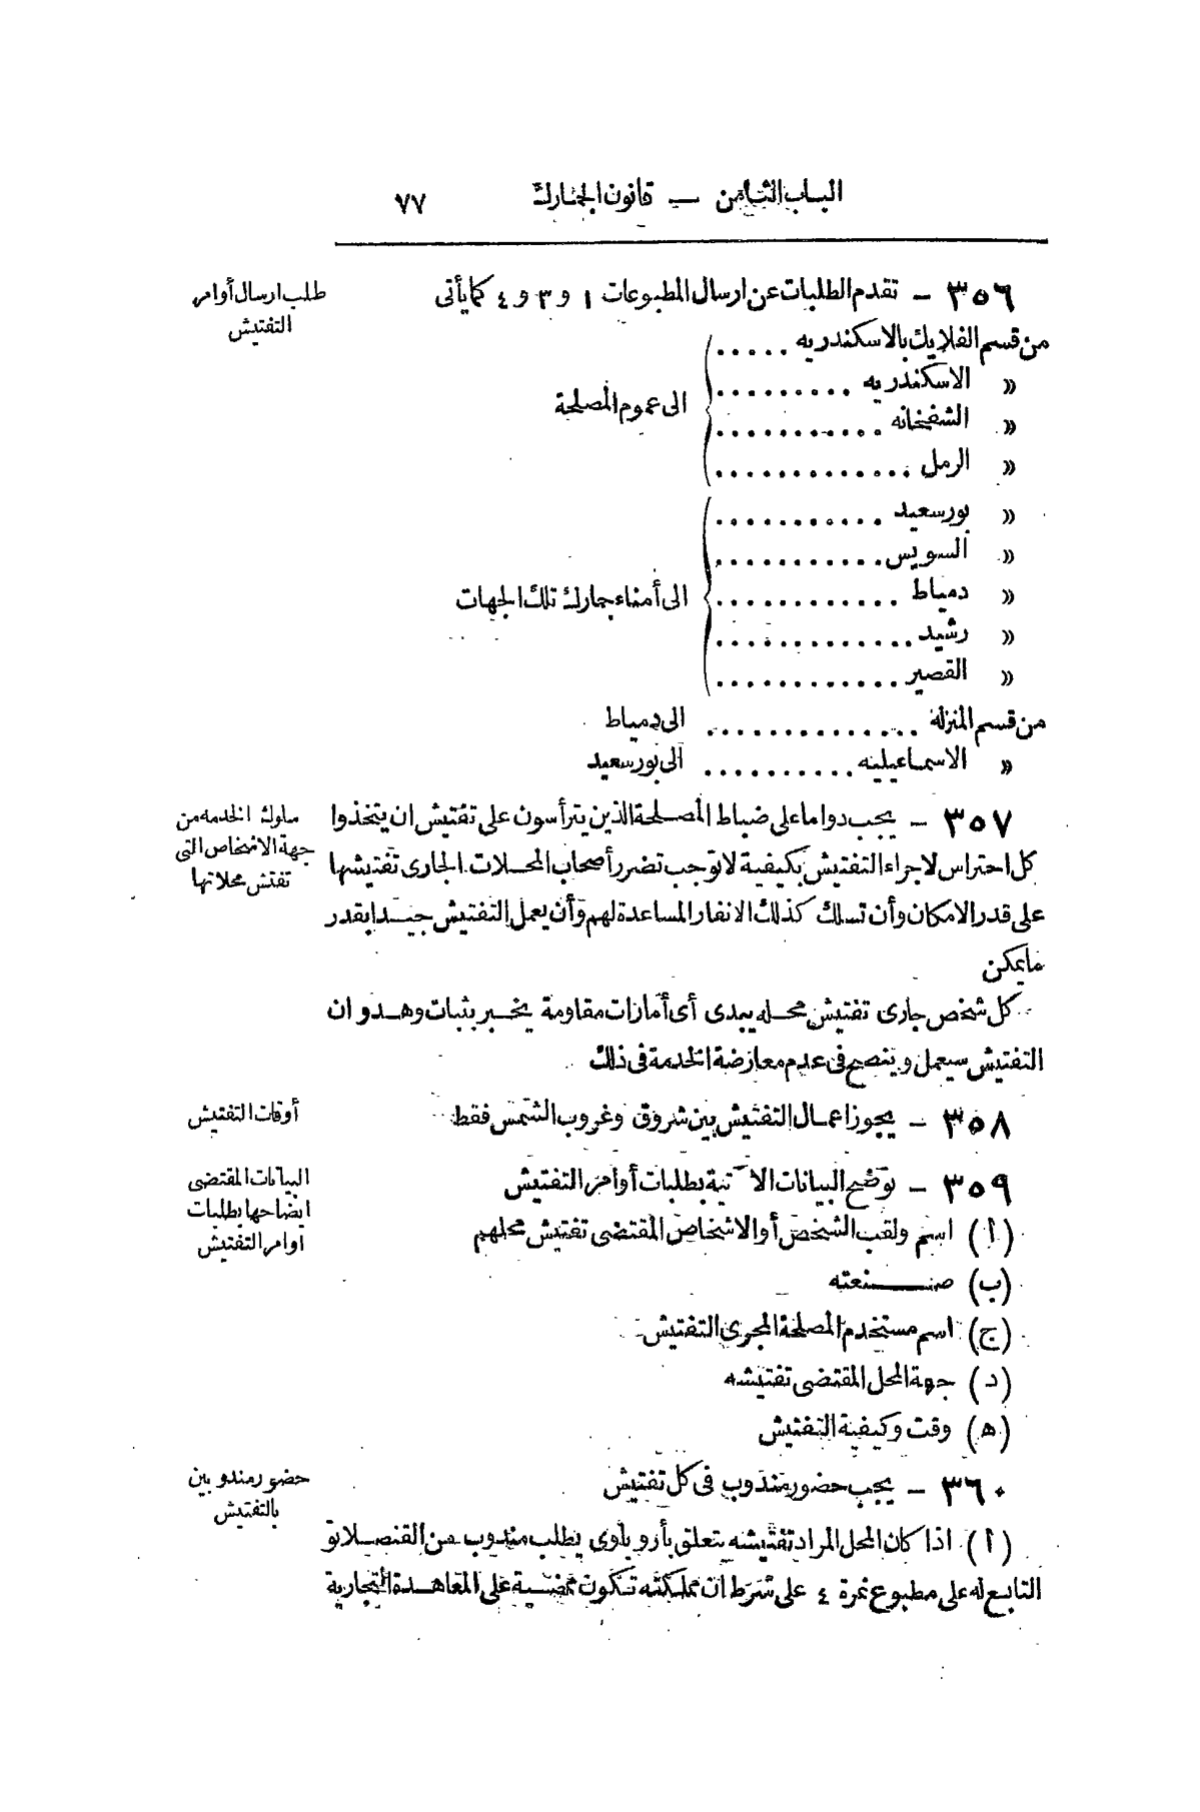 الباب الثامن — قانون الجمارك ٧٧
طلب ارسال أوامر
التفتيش
٣٥٦ — تقدم الطلبات عن ارسال المطبوعات ١ و ٣ و ٤ كما يأتى
من قسم الفلايك بالاسكندريه .....
« الاسكندريه .........
الى عموم المصلحة
« الشفخانه ...........
« الرمل .............
« بورسعيد ...........
« السويس ............
« دمياط ............
الى أمناء جمارك تلك الجهات
« رشيد .............
« القصير ............
من قسم المنزلة .............. الى دمياط
« الاسماعيليه .......... الى بورسعيد
سلوك الخدمه من
جهة الاشخاص التى
تفتش محلاتها
٣٥٧ — يجب دواما على ضباط المصلحة الذين يترأسون على تفتيش ان يتخذوا
كل احتراس لاجراء التفتيش بكيفية لا توجب تضرر أصحاب المحلات الجارى تفتيشها
على قدر الامكان وأن تسلك كذلك الانفار المساعدة لهم وأن يعمل التفتيش جيدا بقدر
ما يمكن
كل شخص جارى تفتيش محله يبدى أى أمارات مقاومة يخبر بثبات وهدو ان
التفتيش سيعمل وينصح فى عدم معارضة الخدمة فى ذلك
أوقات التفتيش
٣٥٨ — يجوز اعمال التفتيش بين شروق وغروب الشمس فقط
البيانات المقتضى
ايضاحها بطلبات
أوامر التفتيش
٣٥٩ — توضح البيانات الآتية بطلبات أوامر التفتيش
(أ) اسم ولقب الشخص أو الاشخاص المقتضى تفتيش محلهم
(ب) صنعته
(ج) اسم مستخدم المصلحة المجرى التفتيش
(د) جهة المحل المقتضى تفتيشه
(ه) وقت وكيفية التفتيش
حضور مندوبين
بالتفتيش
٣٦٠ — يجب حضور مندوب فى كل تفتيش
(أ) اذا كان المحل المراد تفتيشه يتعلق بأروباوى يطلب مندوب من القنصلاتو
التابع له على مطبوع نمرة ٤ على شرط ان مملكته تكون ممضية على المعاهدة التجارية